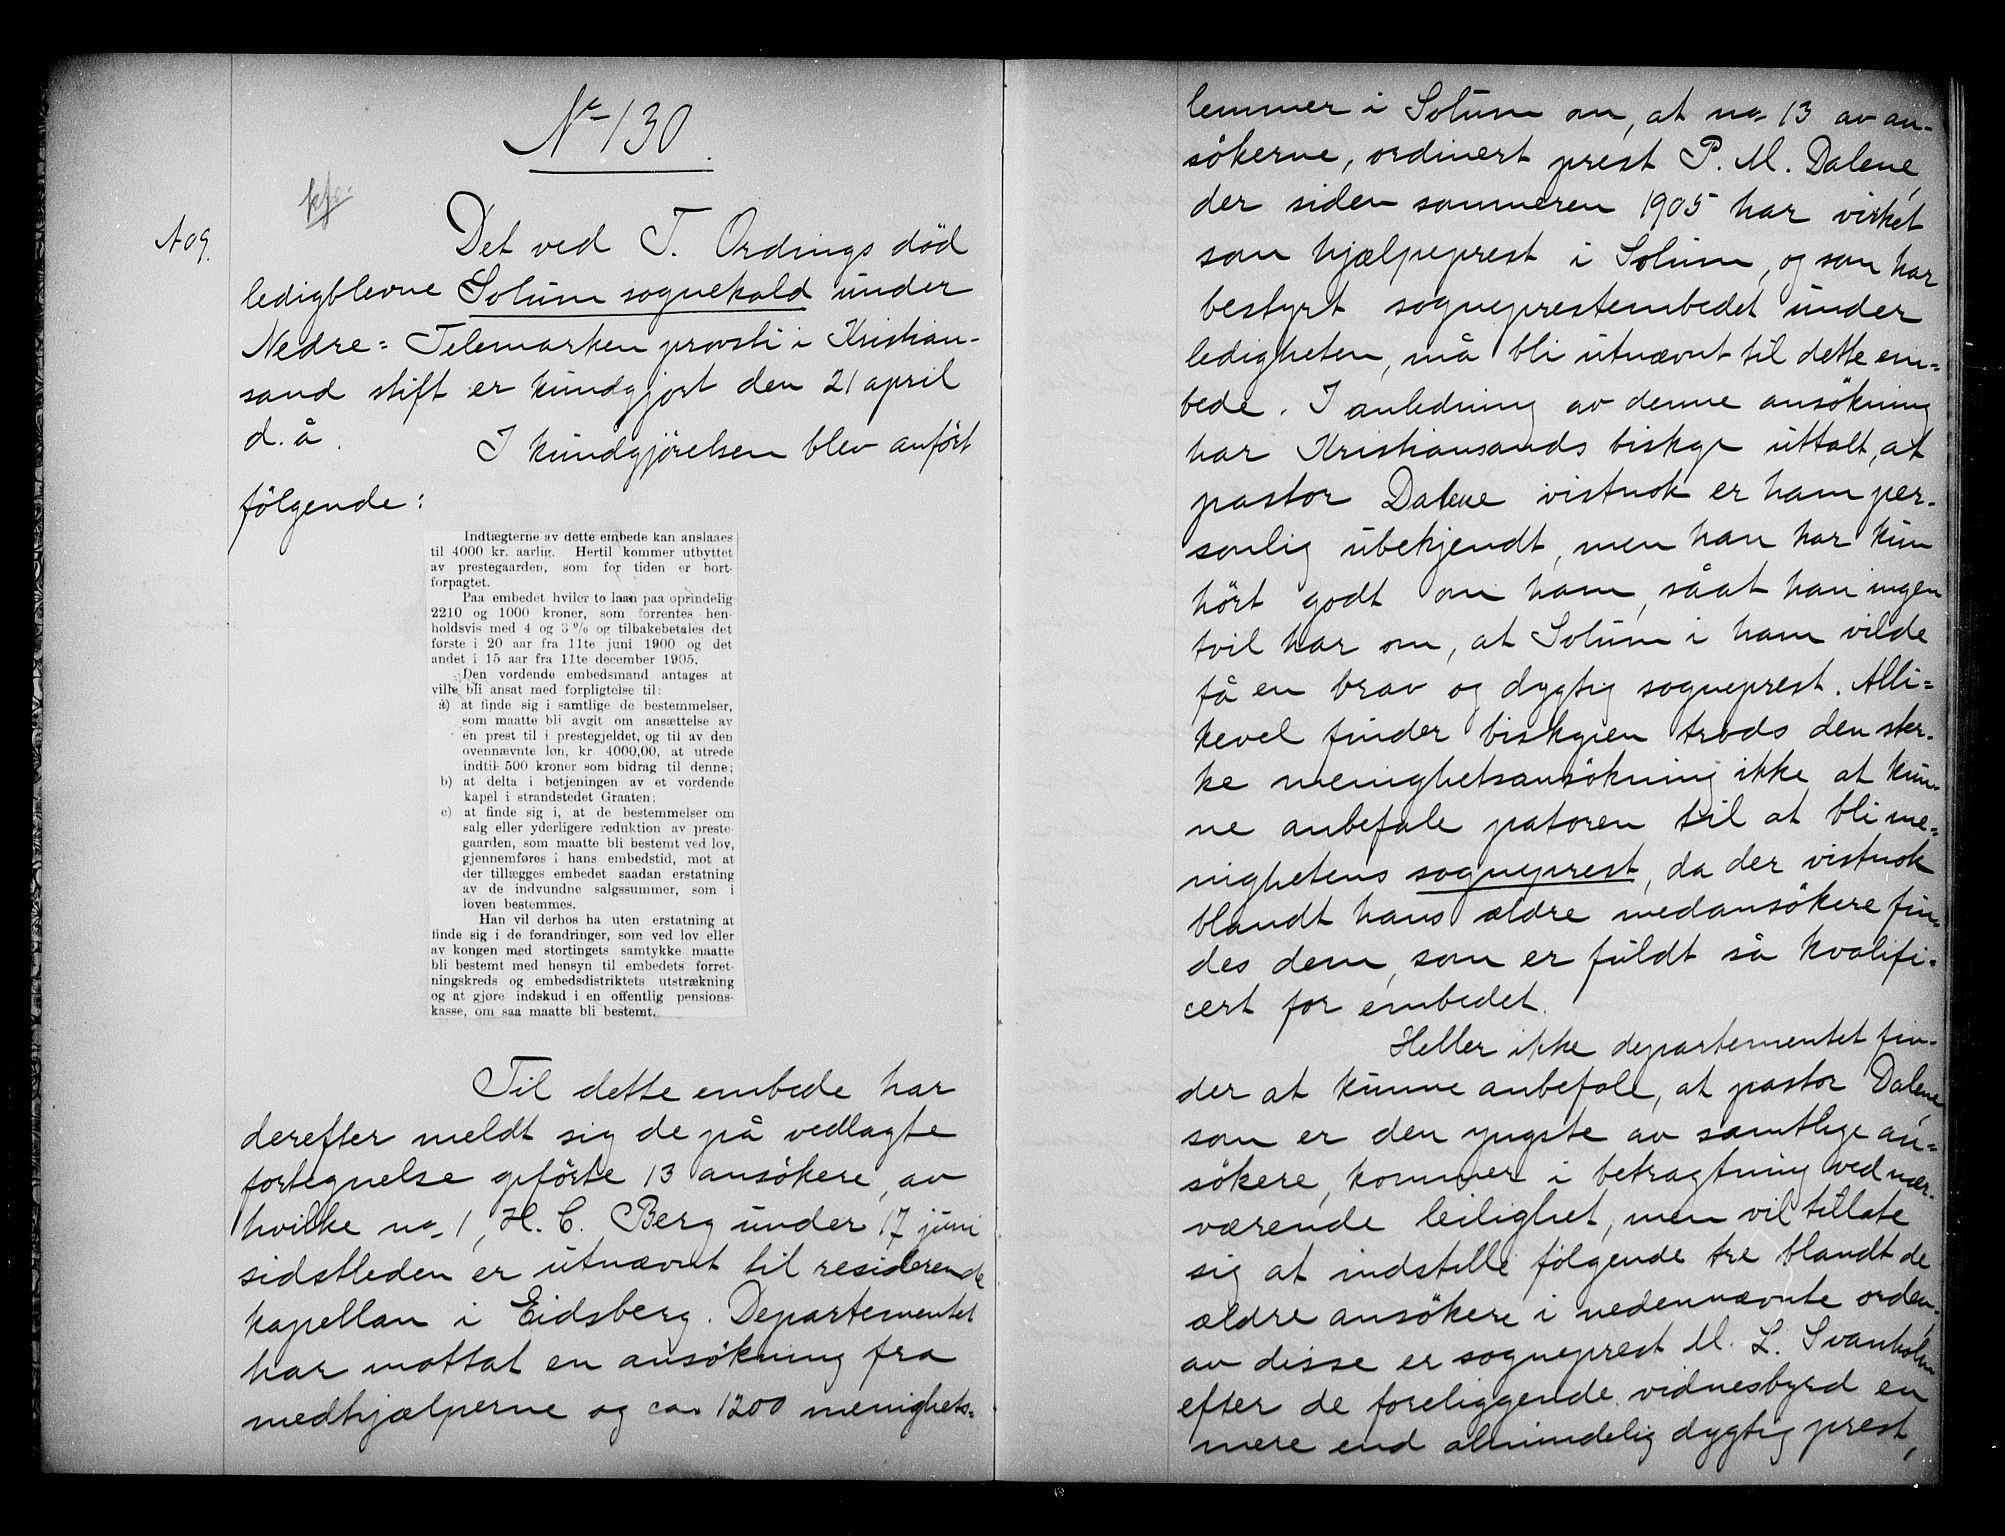 No 130.
kfr.
A 09.
Det ved T. Ordings död
ledigblevne Solum sognekald under
Nedre = Telemarken provsti i Kristian-
sand stift er kundgjort den 21 april
d. å.
I kundgjörelsen blev anfört
fölgende:
Indtægterne av dette embede kan anslaaes
til 4000 kr. aarlig. Hertil kommer utbyttet
av prestegaarden, som for tiden er bort-
forpagtet.
Paa embedet hviler to laan paa oprindelig
2210 og 1000 kroner, som forrentes hen-
holdsvis med 4 og 3 % og tilbakebetales det
første i 20 aar fra 11te juni 1900 og det
andet i 15 aar fra 11te december 1905.
Den vordende embedsmand antages at
ville bli ansat med forpligtelse til:
a) at finde sig i samtlige de bestemmelser,
som maatte bli avgit om ansættelse av
en prest til i prestegjeldet, og til av den
ovennævnte løn, kr. 4000,00, at utrede
indtil 500 kroner som bidrag til denne;
b) at delta i betjeningen av et vordende
kapel i strandstedet Graaten;
c) at finde sig i, at de bestemmelser om
salg eller yderligere reduktion av preste-
gaarden, som maatte bli bestemt ved lov,
gjennemføres i hans embedstid, mot at
der tillægges embedet saadan erstatning
av de indvundne salgssummer, som i
loven bestemmes.
Han vil derhos ha uten erstatning at
finde sig i de forandringer, som ved lov eller
av kongen med stortingets samtykke maatte
bli bestemt med hensyn til embedets forret-
ningskreds og embedsdistriktets utstrækning
og at gjøre indskud i en offentlig pensions-
kasse, om saa maatte bli bestemt.
Til dette embede har
derefter meldt sig de på vedlagte
fortegnelse opförte 13 ansökere, av
hvilke no. 1, H. C. Berg under 17 juni
sidstleden er utnævnt til residerende
kapellan i Eidsberg. Departementet
har mottat en ansökning fra
medhjælperne og ca. 1200 menighets=
lemmer i Solum om, at no. 13 av an-
sökerne, ordinert prest P. M. Dalene,
der siden sommeren 1905 har virket
som hjælpeprest i Solum, og som har
bestyrt sogneprestembedet under
ledigheten, må bli utnævnt til dette em=
bede. I anledning av denne ansökning
har Kristiansands biskop uttalt, at
pastor Dalene vistnok er ham per-
sonlig ubekjendt, men han har kun
hört godt om ham, såat han ingen
tvil har om, at Solum i ham vilde
få en brav og dygtig sogneprest. Alli=
kevel finder biskopen trods den ster-
ke menighetsansökning ikke at kun-
ne anbefale patoren til at bli me=
nighetens sogneprest, da der vistnok
blandt hans ældre medansökere fin-
des dem, som er fuldt så kvalifi-
cert for embedet.
Heller ikke departementet fin-
der at kunne anbefale, at pastor Dalene,
som er den yngste av samtlige an=
sökere, kommer i betragtning ved nær-
værende leilighet, men vil tillate
sig at indstille fölgende tre blandt de
ældre ansökere i nedennævnte orden;
av disse er sogneprest M. L. Svanholm
efter de foreliggende vidnesbyrd en
mere end almindelig dygtig prest,